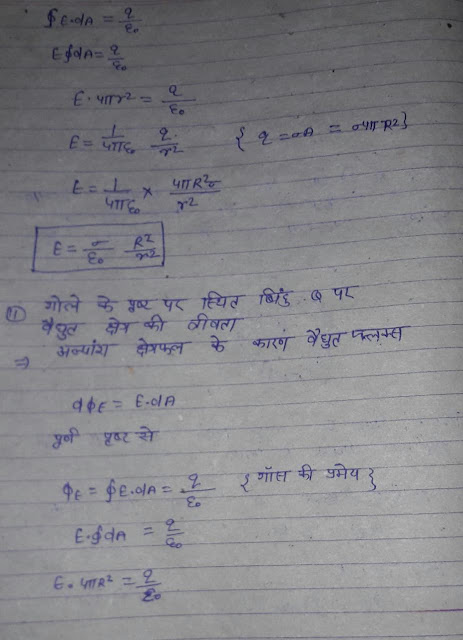 ∮E.dA = q/ε₀
E∮dA = q/ε₀
E. 4πr² = q/ε₀
E = 1/4πε₀ q/r² { q = σA = σ4πR²}
E = 1/4πε₀ × 4πR²σ/r²
E = σ/ε₀ R²/r²
(ii) गोले के पृष्ट पर स्थित बिंदु Q पर
वैधुत क्षेत्र की तीव्रता
⇒ अल्पांश क्षेत्रफल के कारण वैधुत फ्लक्स
dϕE = E.dA
पूर्ण पृष्ट से
ϕE = ∮E.dA = q/ε₀ { गॉस की प्रमेय }
E.∮dA = q/ε₀
E. 4πR² = q/ε₀